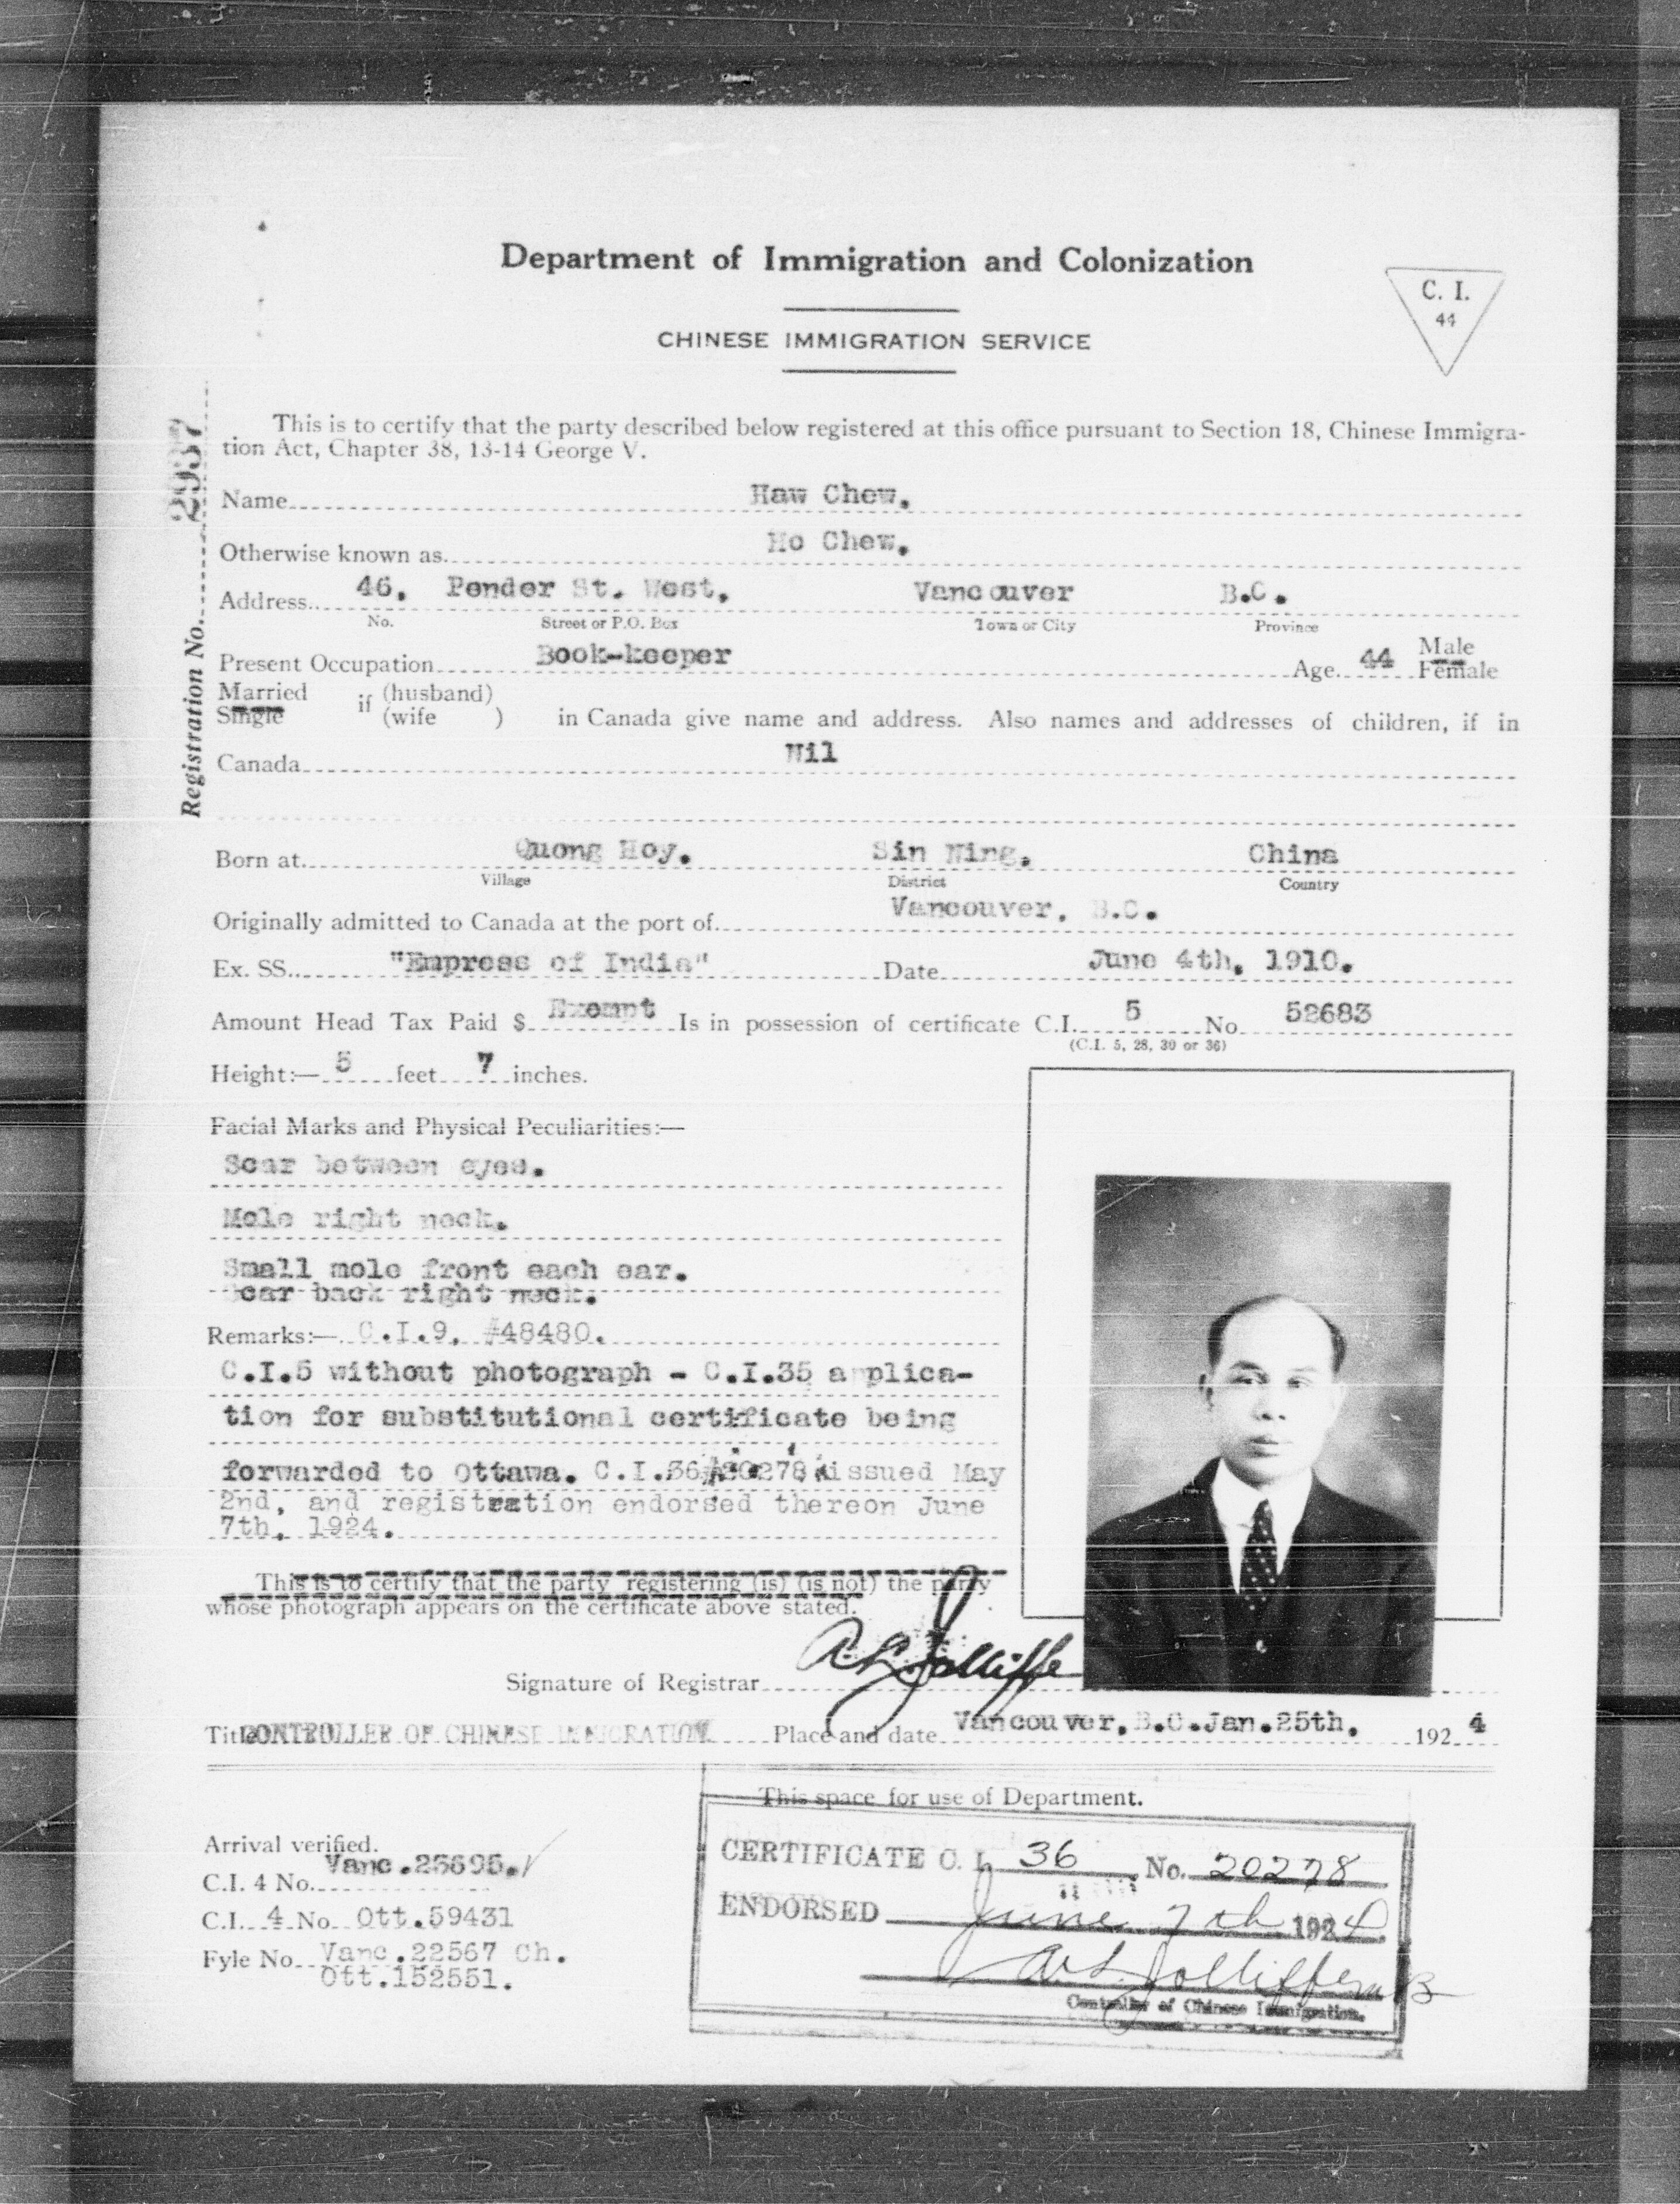 Department of Immigration and Colonization
C. I.
44
CHINESE IMMIGRATION SERVICE
This is to certify that the party described below registered at this office pursuant to Section 18, Chinese Immigra-
tion Act, Chapter 38, 13-14 George V.
Registration No.
Name Haw Chew.
Otherwise known as Ho Chew.
Address 46, Pender St. West, Vancouver B.C.
No. Street or P.O. Box Town or City Province
Present Occupation Book-keeper Age 44 Male
Female
Married if (husband)
Single (wife ) in Canada give name and address. Also names and addresses of children, if in
Canada Nil
Born at Quong Hoy. Sin Ning. China
Village District Country
Originally admitted to Canada at the port of Vancouver, B.C.
Ex. SS. "Empress of India" Date June 4th, 1910.
Amount Head Tax Paid $ Exempt Is in possession of certificate C.I. 5 No. 52683
(C.I. 5, 28, 30 or 36)
Height:— 5 feet 7 inches.
Facial Marks and Physical Peculiarities:—
Scar between eyes.
Mole right neck.
Small mole front each ear.
Scar back right neck.
Remarks:— C.I.9, #48480.
C.I.5 without photograph - C.I.35 applica-
tion for substitutional certificate being
forwarded to Ottawa. C.I.36 #20278 issued May
2nd, and registration endorsed thereon June
7th, 1924.
This is to certify that the party registering (is) (is not) the party
whose photograph appears on the certificate above stated.
Signature of Registrar A L Jolliffe
Title CONTROLLER OF CHINESE IMMIGRATION Place and date Vancouver, B.C. Jan. 25th, 1924
This space for use of Department.
Arrival verified.
C.I. 4 No. Vanc.23695.
C.I. 4 No. Ott.59431
Fyle No. Vanc.22567 Ch.
Ott.152551.
CERTIFICATE C. I. 36 No. 20278
ENDORSED June 7th 1924.
A.L. Jolliffe
Controller of Chinese Immigration.